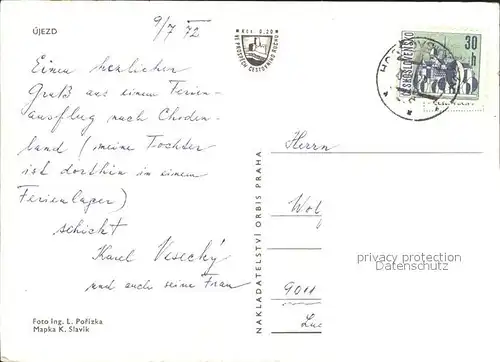 ÚJEZD
9/7 72
Einen herzlichen
Gruß aus einem Ferien-
ausflug nach Choden-
land (meine Tochter
ist dorthin in einem
Ferienlager)
schickt
Karel Vesecký
und auch seine Frau
Foto Ing. L. Pořízka
Mapka K. Slavík
Kčs 0.20
VE PROSPĚCH CESTOVNÍHO RUCHU
NAKLADATELSTVÍ ORBIS PRAHA
ČESKOSLOVENSKO
30 h
Herrn
Wol
9011
privacy protection
Datenschutz